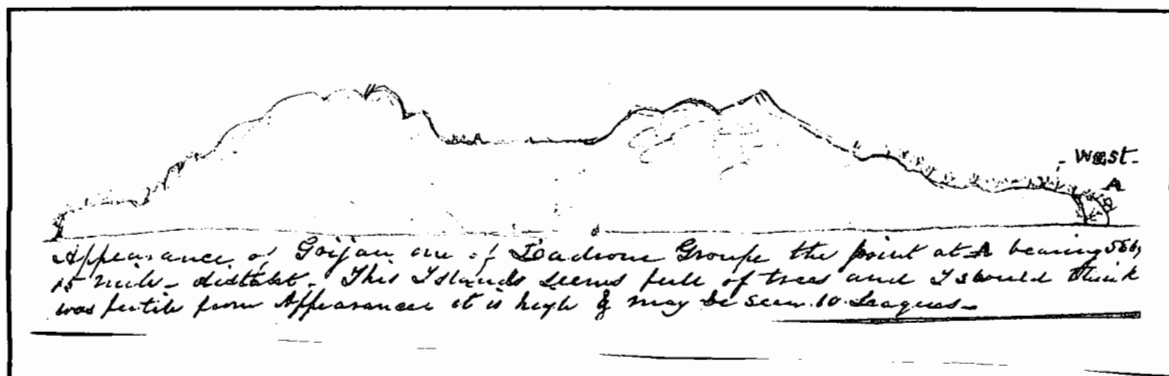 - West -
A
Appearance of Goijan one of Ladrone Groupe the point at A bearing
15 mile - distant - This Islands seems full of trees and I should think
was fertile from Appearances it is high & may be seen 10 Leagues -